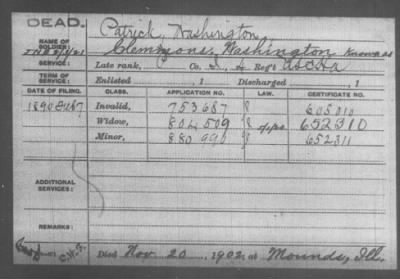 DEAD.
Patrick, Washington
NAME OF SOLDIER: Clemmons, Washington Known as
SERVICE: Late rank, Co. I, 4 Reg't U.S.C.H.A.
TERM OF SERVICE: Enlisted , 1 Discharged , 1
DATE OF FILING. CLASS. APPLICATION NO. LAW. CERTIFICATE NO.
1890 Invalid, 753687 605010
Widow, 804509 652310
Minor, 880990 652311
ADDITIONAL SERVICES:
REMARKS:
C.W.F. Died Nov. 20, 1902, at Mounds, Ill.